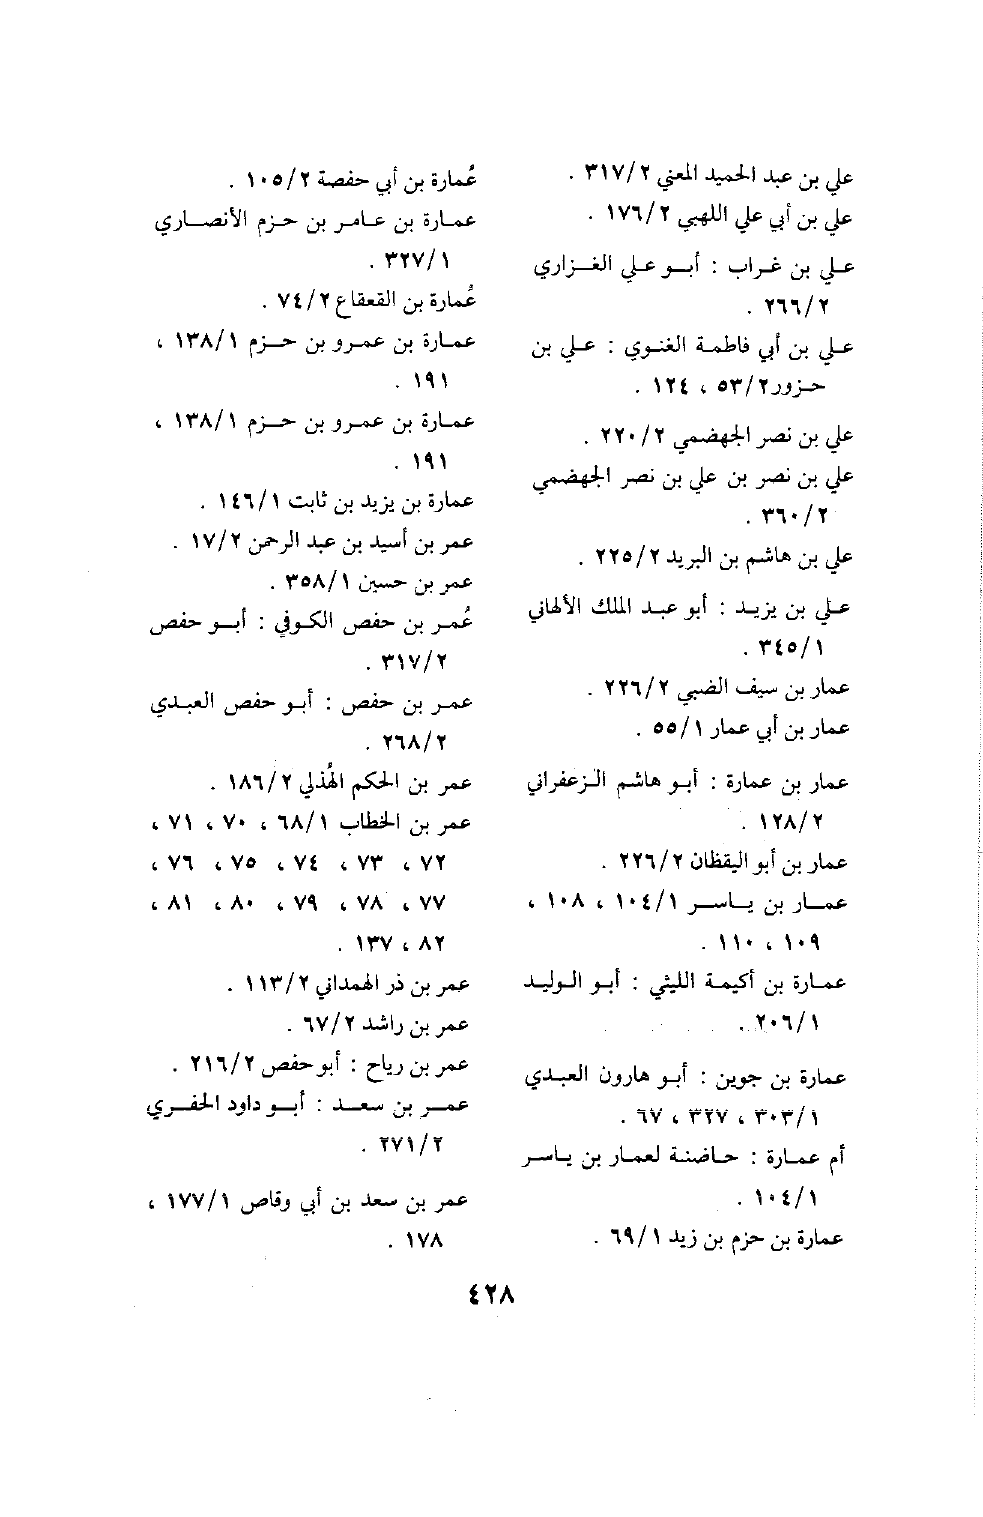 علي بن عبد الحميد المعني ٣١٧/٢ .
علي بن أبي علي اللهبي ١٧٦/٢ .
علي بن غراب : أبو علي الفزاري
٢٦٦/٢ .
علي بن أبي فاطمة الغنوي : علي بن
حزور ٥٣/٢ ، ١٢٤ .
علي بن نصر الجهضمي ٢٢٠/٢ .
علي بن نصر بن علي بن نصر الجهضمي
٣٦٠/٢ .
علي بن هاشم بن البريد ٢٢٥/٢ .
علي بن يزيد : أبو عبد الملك الألهاني
٣٤٥/١ .
عمار بن سيف الضبي ٢٢٦/٢ .
عمار بن أبي عمار ٥٥/١ .
عمار بن عمارة : أبو هاشم الزعفراني
١٢٨/٢ .
عمار بن أبو اليقظان ٢٢٦/٢ .
عمار بن ياسر ١٠٤/١ ، ١٠٨ ،
١٠٩ ، ١١٠ .
عمارة بن أكيمة الليثي : أبو الوليد
٢٠٦/١ .
عمارة بن جوين : أبو هارون العبدي
٣٠٣/١ ، ٣٢٧ ، ٦٧ .
أم عمارة : حاضنة لعمار بن ياسر
١٠٤/١ .
عمارة بن حزم بن زيد ٦٩/١ .
عُمارة بن أبي حفصة ١٠٥/٢ .
عمارة بن عامر بن حزم الأنصاري
٣٢٧/١ .
عُمارة بن القعقاع ٧٤/٢ .
عمارة بن عمرو بن حزم ١٣٨/١ ،
١٩١ .
عمارة بن عمرو بن حزم ١٣٨/١ ،
١٩١ .
عمارة بن يزيد بن ثابت ١٤٦/١ .
عمر بن أسيد بن عبد الرحمن ١٧/٢ .
عمر بن حسين ٣٥٨/١ .
عُمر بن حفص الكوفي : أبو حفص
٣١٧/٢ .
عمر بن حفص : أبو حفص العبدي
٢٦٨/٢ .
عمر بن الحكم الهُذلي ١٨٦/٢ .
عمر بن الخطاب ٦٨/١ ، ٧٠ ، ٧١ ،
٧٢ ، ٧٣ ، ٧٤ ، ٧٥ ، ٧٦ ،
٧٧ ، ٧٨ ، ٧٩ ، ٨٠ ، ٨١ ،
٨٢ ، ١٣٧ .
عمر بن ذر الهمداني ١١٣/٢ .
عمر بن راشد ٦٧/٢ .
عمر بن رياح : أبو حفص ٢١٦/٢ .
عمر بن سعد : أبو داود الحفري
٢٧١/٢ .
عمر بن سعد بن أبي وقاص ١٧٧/١ ،
١٧٨ .
٤٢٨